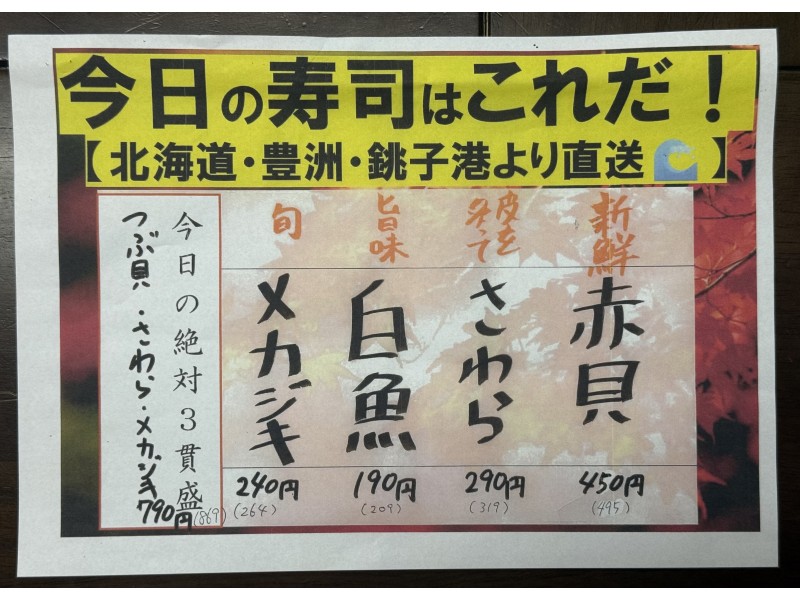 今日の寿司はこれだ！
【北海道・豊洲・銚子港より直送🌊】
新鮮
赤貝
450円
(495)
皮を
炙って
さわら
290円
(319)
旨味
白魚
190円
(209)
旬
メカジキ
240円
(264)
今日の絶対3貫盛
つぶ貝・さわら・メカジキ
790円(869)